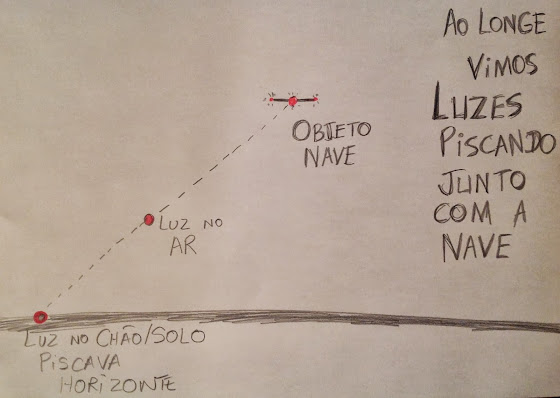 AO LONGE
VIMOS
LUZES
PISCANDO
JUNTO
COM A
NAVE
OBJETO
NAVE
LUZ NO
AR
LUZ NO CHÃO/SOLO
PISCAVA
HORIZONTE